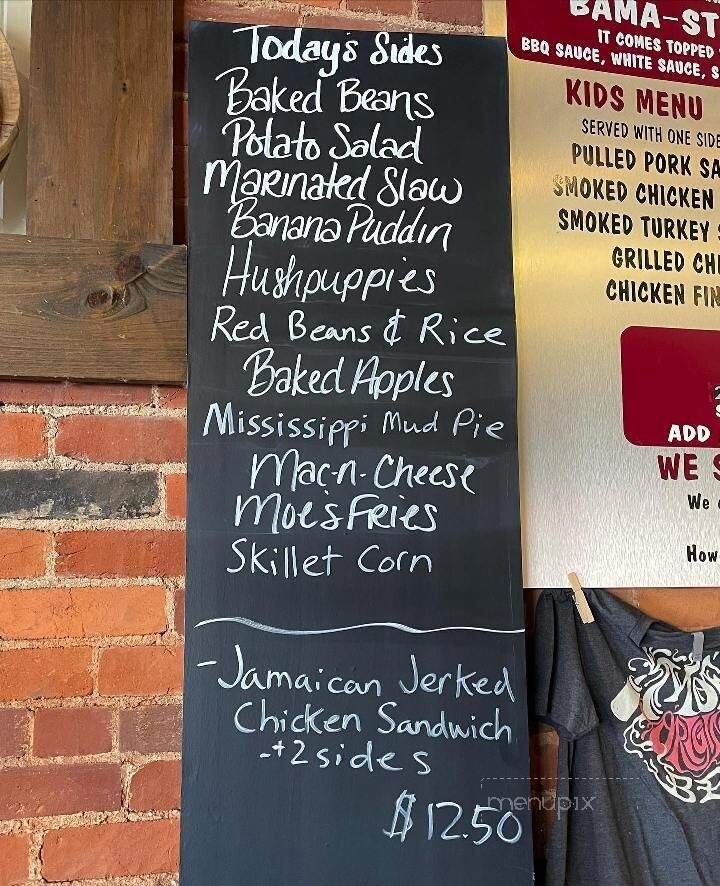 Today's Sides
Baked Beans
Potato Salad
Marinated Slaw
Banana Puddin
Hushpuppies
Red Beans & Rice
Baked Apples
Mississippi Mud Pie
Mac-n-Cheese
Moe's Fries
Skillet Corn
-Jamaican Jerked
Chicken Sandwich
-+2 sides
$12.50
menupix
BAMA-ST
IT COMES TOPPED
BBQ SAUCE, WHITE SAUCE, S
KIDS MENU
SERVED WITH ONE SIDE
PULLED PORK SA
SMOKED CHICKEN
SMOKED TURKEY S
GRILLED CHI
CHICKEN FIN
ADD
WE S
We
How